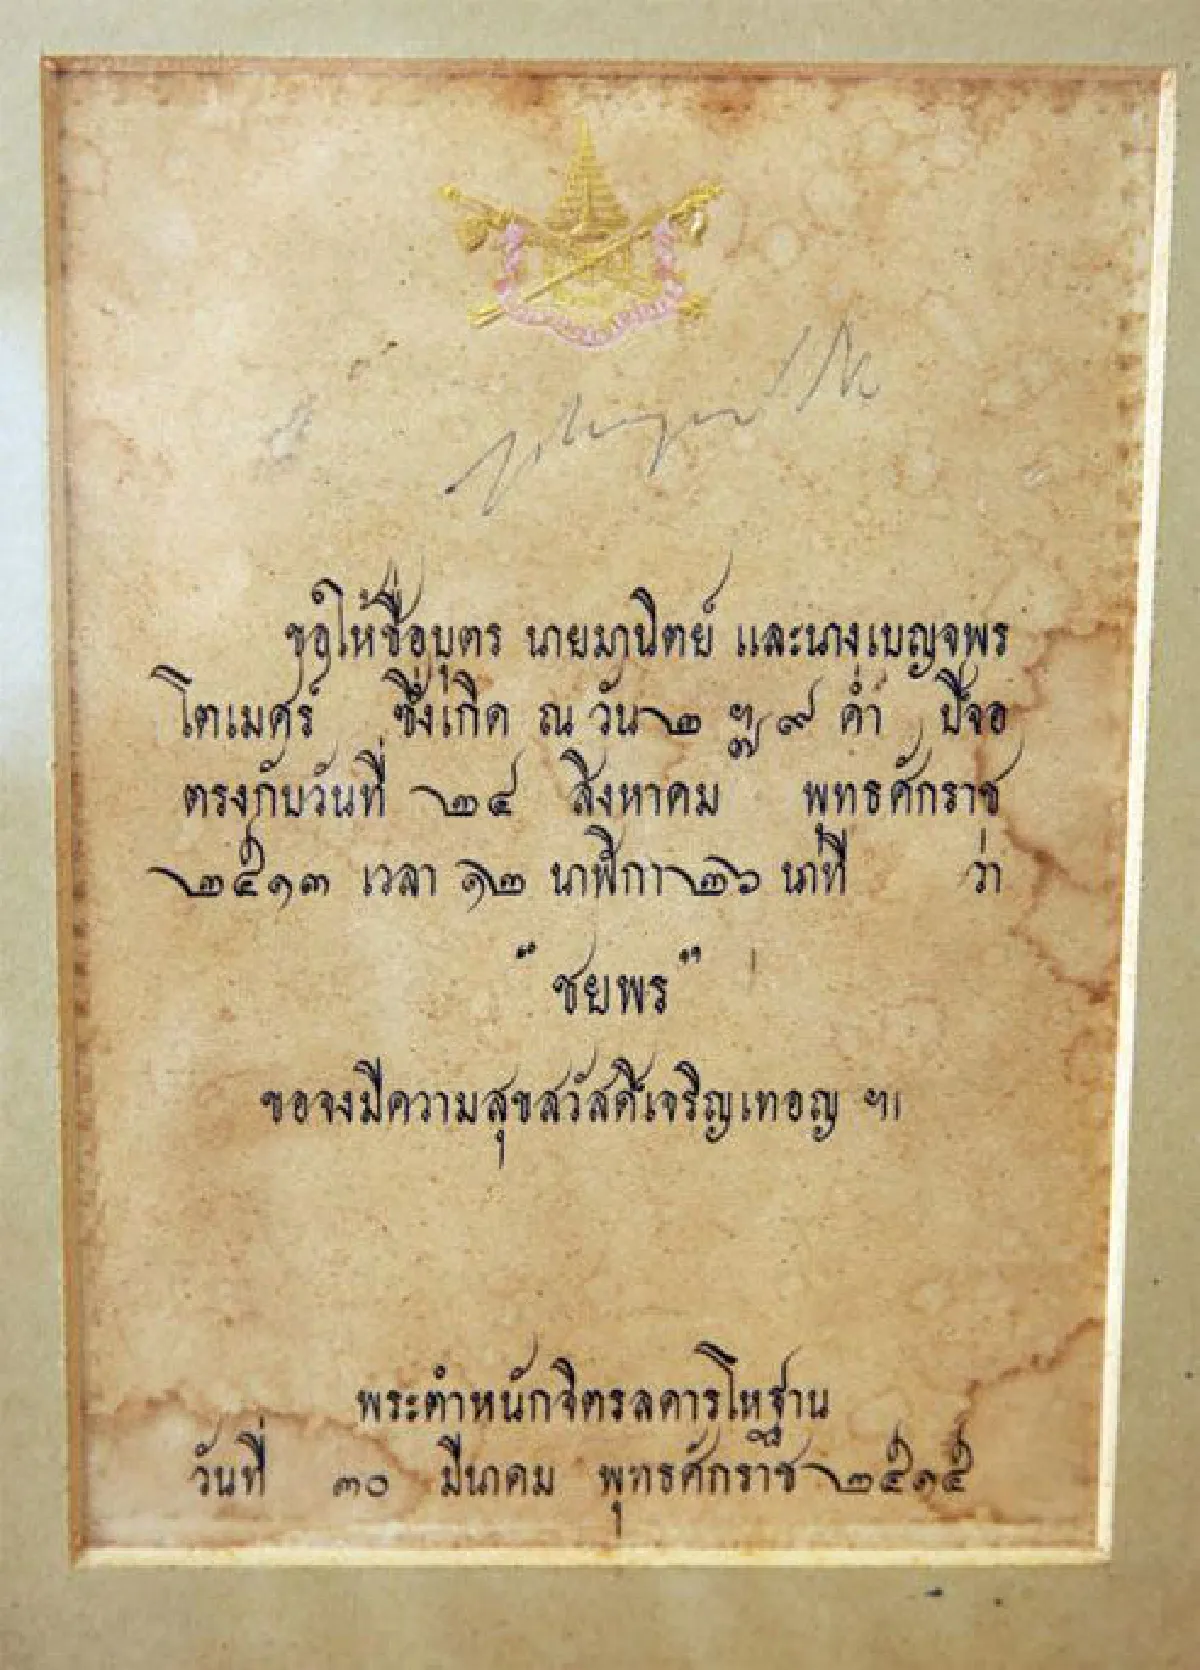 ขอให้ชื่อบุตร นายมานิตย์ และนางเบญจพร
โตเมศร์ ซึ่งเกิด ณ วัน ๒ ฯ ๙ ค่ำ ปีจอ
ตรงกับวันที่ ๒๔ สิงหาคม พุทธศักราช
๒๕๑๓ เวลา ๑๒ นาฬิกา ๒๖ นาที ว่า
"ชยพร"
ขอจงมีความสุขสวัสดีเจริญเทอญ ฯ
พระตำหนักจิตรลดารโหฐาน
วันที่ ๓๐ มีนาคม พุทธศักราช ๒๕๑๕